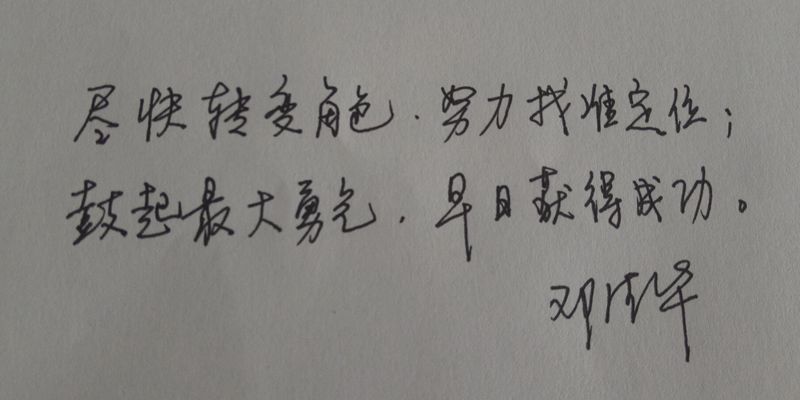 尽快转变角色.努力找准定位;
鼓起最大勇气.早日获得成功。
邓